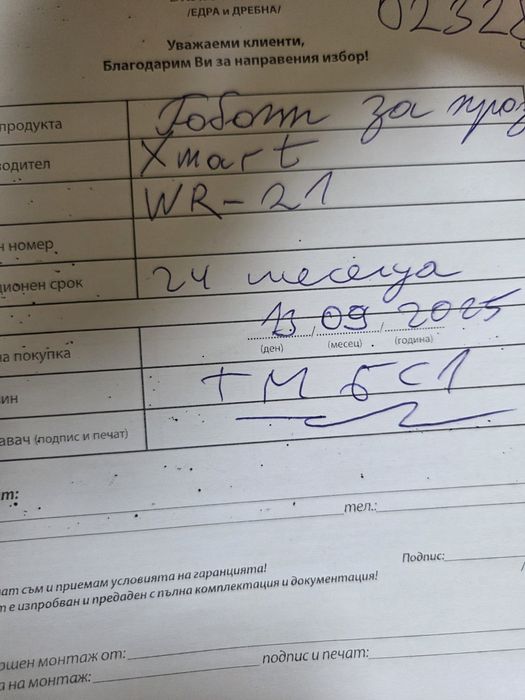 /ЕДРА и ДРЕБНА/
Уважаеми клиенти,
Благодарим Ви за направения избор!
продукта Робот за проз
водител Xmart
WR-21
н номер
ционен срок 24 месеца
13/09/2025
(ден) (месец) (година)
на покупка
ин ТМ БС1
авач (подпис и печат)
нт:
тел.:
Подпис:
нат съм и приемам условията на гаранцията!
т е изпробван и предаден с пълна комплектация и документация!
ршен монтаж от: подпис и печат:
а на монтаж: